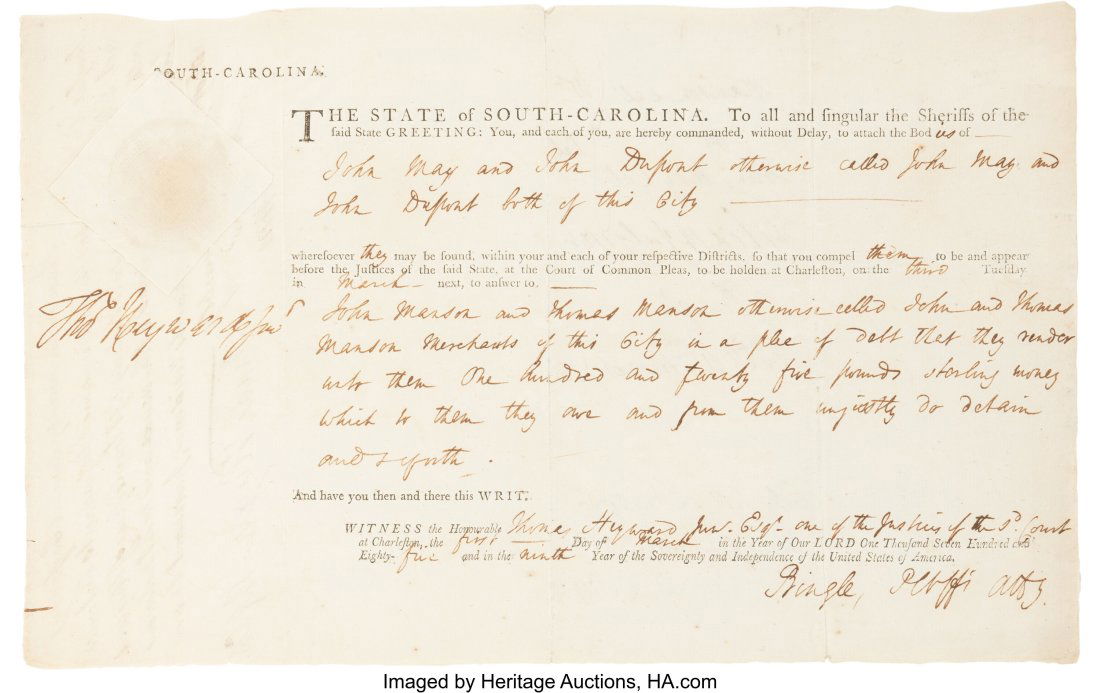 SOUTH-CAROLINA.
THE STATE of SOUTH-CAROLINA. To all and ſingular the Sheriffs of the
ſaid State GREETING: You, and each of you, are hereby commanded, without Delay, to attach the Bodies of
John May and John Dupont otherwise called John May and
John Dupont both of this City
whereſoever they may be found, within your and each of your reſpective Diſtricts, ſo that you compel them to be and appear
before the Juſtices of the ſaid State, at the Court of Common Pleas, to be holden at Charleſton, on the third Tueſday
in March next, to anſwer to.
Thos Heyward Junr
John Manson and Thomas Manson otherwise called John and Thomas
Manson Merchants of this City in a plea of debt that they render
unto them One hundred and twenty five pounds sterling money
which to them they owe and from them unjustly do detain
and so forth.
And have you then and there this WRIT.
WITNESS the Honourable Thomas Heyward Junr. Esqr. one of the Justices of the sd. Court
at Charleſton, the first Day of March in the Year of Our LORD One Thouſand Seven Hundred and
Eighty-five and in the ninth Year of the Sovereignty and Independence of the United States of America.
Pringle, Pltffs atty.
Imaged by Heritage Auctions, HA.com